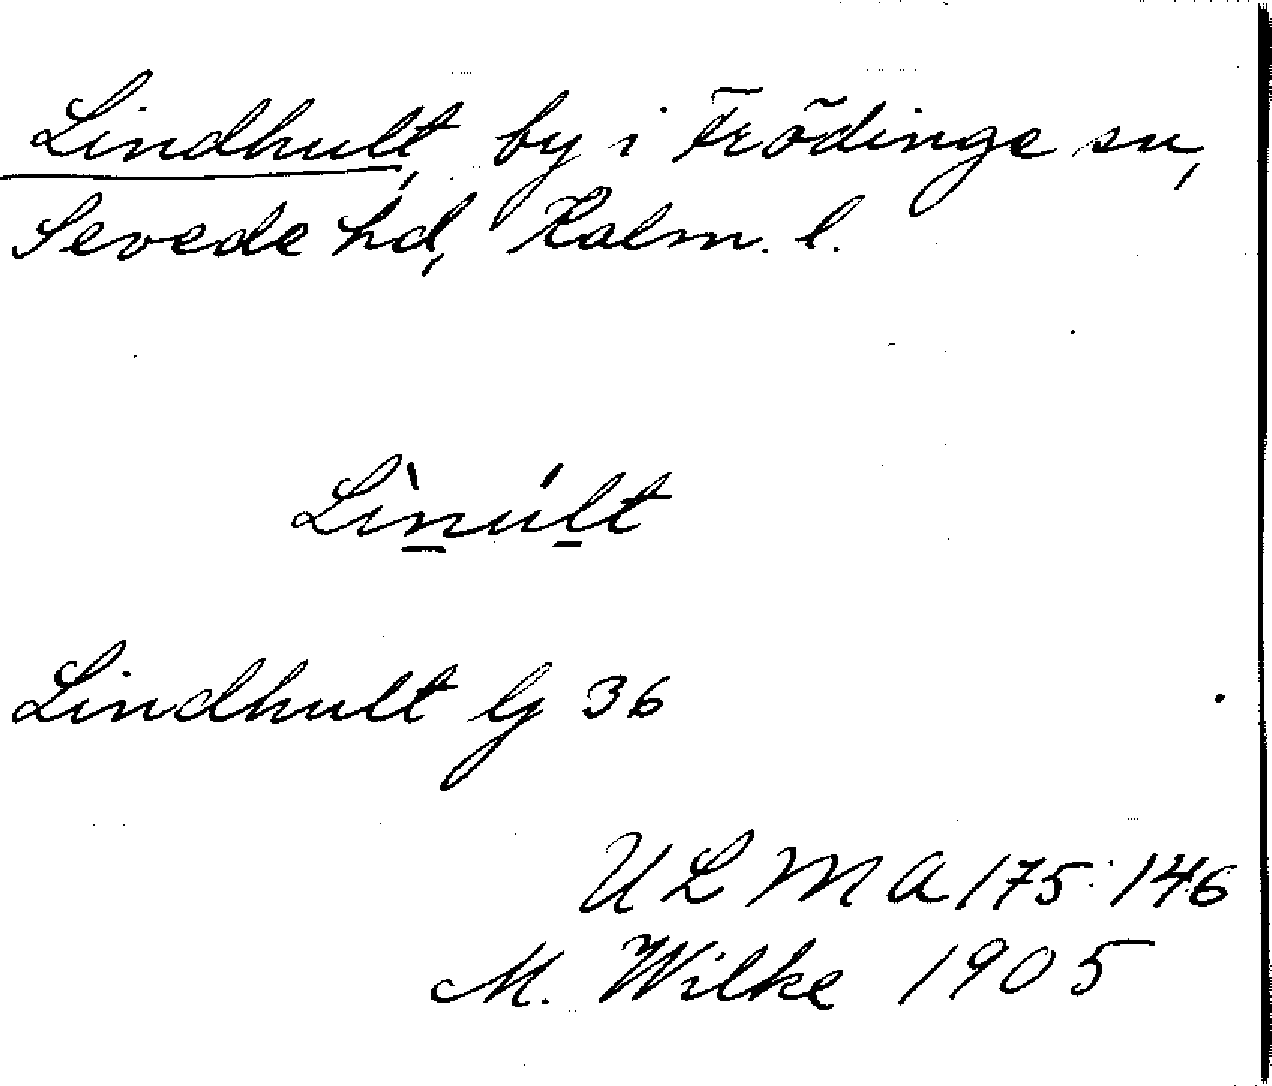 Lindhult, by i Frödinge sn,
Sevede hd, Kalm. l.
Lìn̲úl̲t
Lindhult Gj 36
ULMA 175:146
M. Wilke 1905